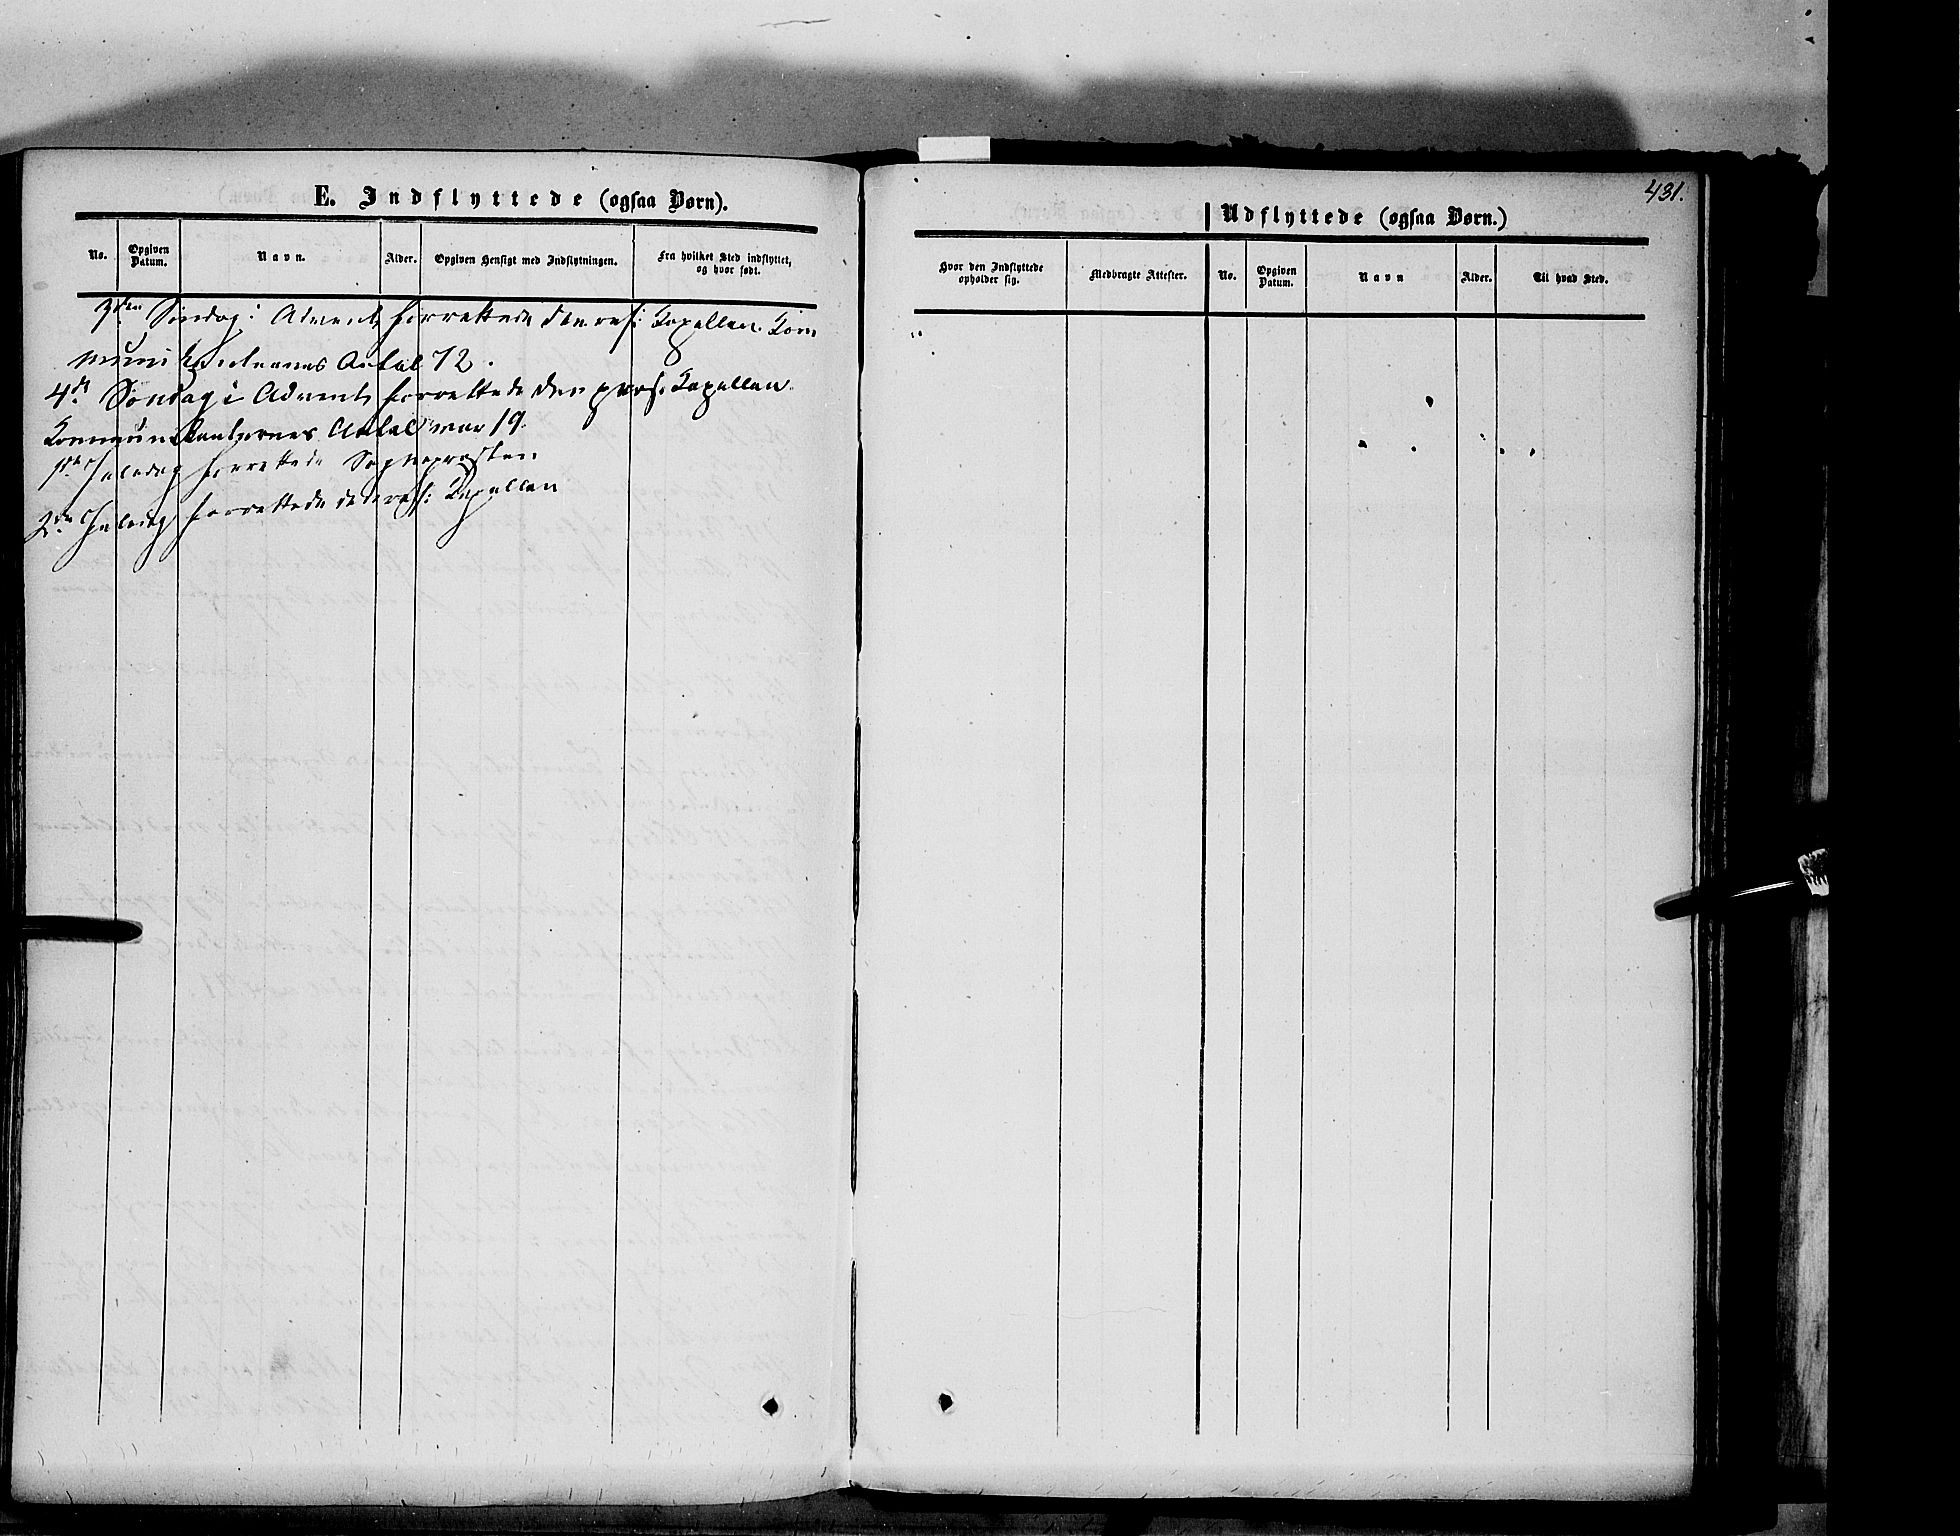 E. Indflyttede (ogsaa Børn).
No.
Opgiven Datum.
Navn.
Alder.
Opgiven Hensigt med Indflytningen.
Fra hvilket Sted indflyttet, og hvor født.
3die Søndag i Advent forrettede den res: Kapellan. Kom
munikanternes Antal 72.
4de Søndag i Advent forrettede den pers: Kapellan.
Kommunikanternes Antal var 19.
1ste Juledag forrettede Sognepræsten
2den Juledag forrettede den res: Kapellan
431.
Udflyttede (ogsaa Børn.)
Hvor den Indflyttede opholder sig.
Medbragte Attester.
No.
Opgiven Datum.
Navn
Alder.
Til hvad Sted.